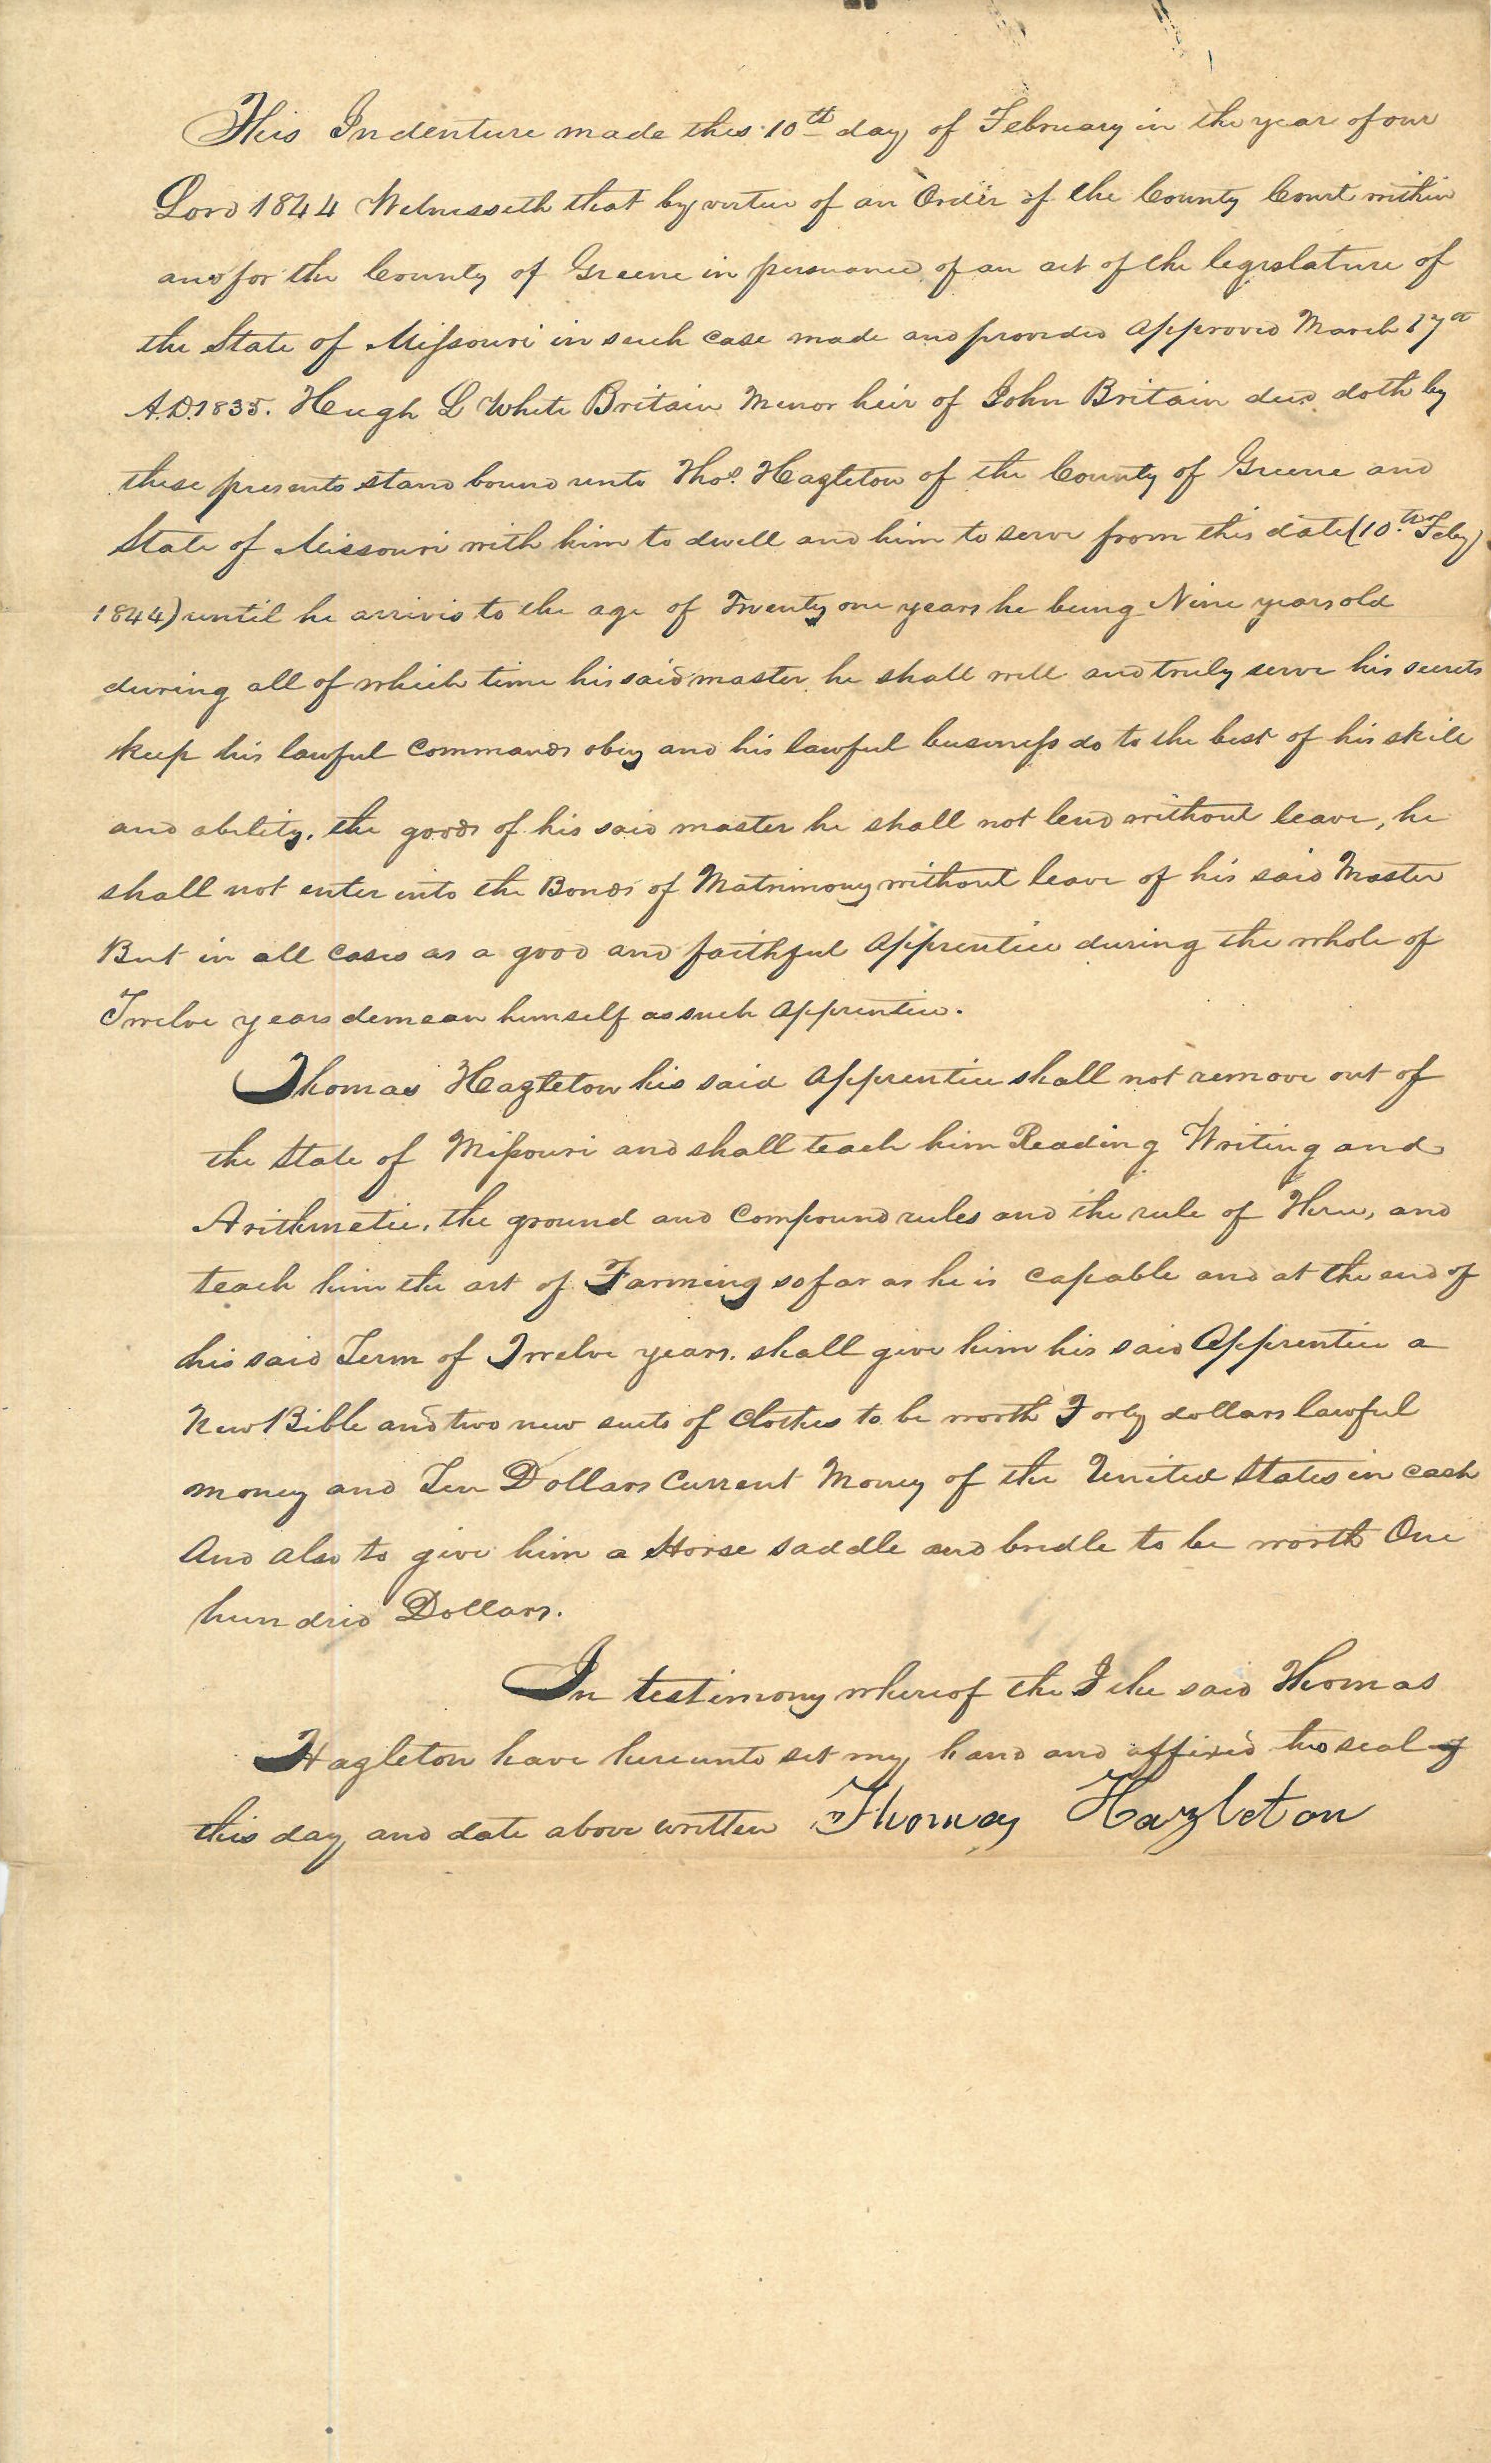 This Indenture made this 10th day of February in the year of our
Lord 1844 Witnesseth that by virtue of an Order of the County Court within
and for the County of Greene in persuance of an act of the legislature of
the State of Missouri in such case made and provided approved March 17th
A.D. 1835. Hugh L White Britain Minor heir of John Britain decd doth by
these presents stand bound unto Thos. Hazleton of the County of Greene and
State of Missouri with him to dwell and him to serve from this date (10th Feby
1844) until he arrives to the age of Twenty one years he being Nine years old
during all of which time his said master he shall well and truly serve his secrets
keep his lawful commands obey and his lawful business do to the best of his skill
and ability. the goods of his said master he shall not lend without leave, he
shall not enter into the Bonds of Matrimony without leave of his said Master
But in all cases as a good and faithful apprentice during the whole of
Twelve years demean himself as such apprentice.
Thomas Hazleton his said apprentice shall not remove out of
the State of Missouri and shall teach him Reading Writing and
Arithmetic. the ground and compound rules and the rule of Three, and
teach him the art of Farming so far as he is capable and at the end of
his said Term of Twelve years. shall give him his said apprentice a
New Bible and two new suits of clothes to be worth Forty dollars lawful
money and Ten Dollars Current Money of the United States in cash
And also to give him a Horse saddle and bridle to be worth One
hundred Dollars.
In testimony whereof the I the said Thomas
Hazleton have hereunto set my hand and affixed seal
this day and date above written Thomas Hazleton